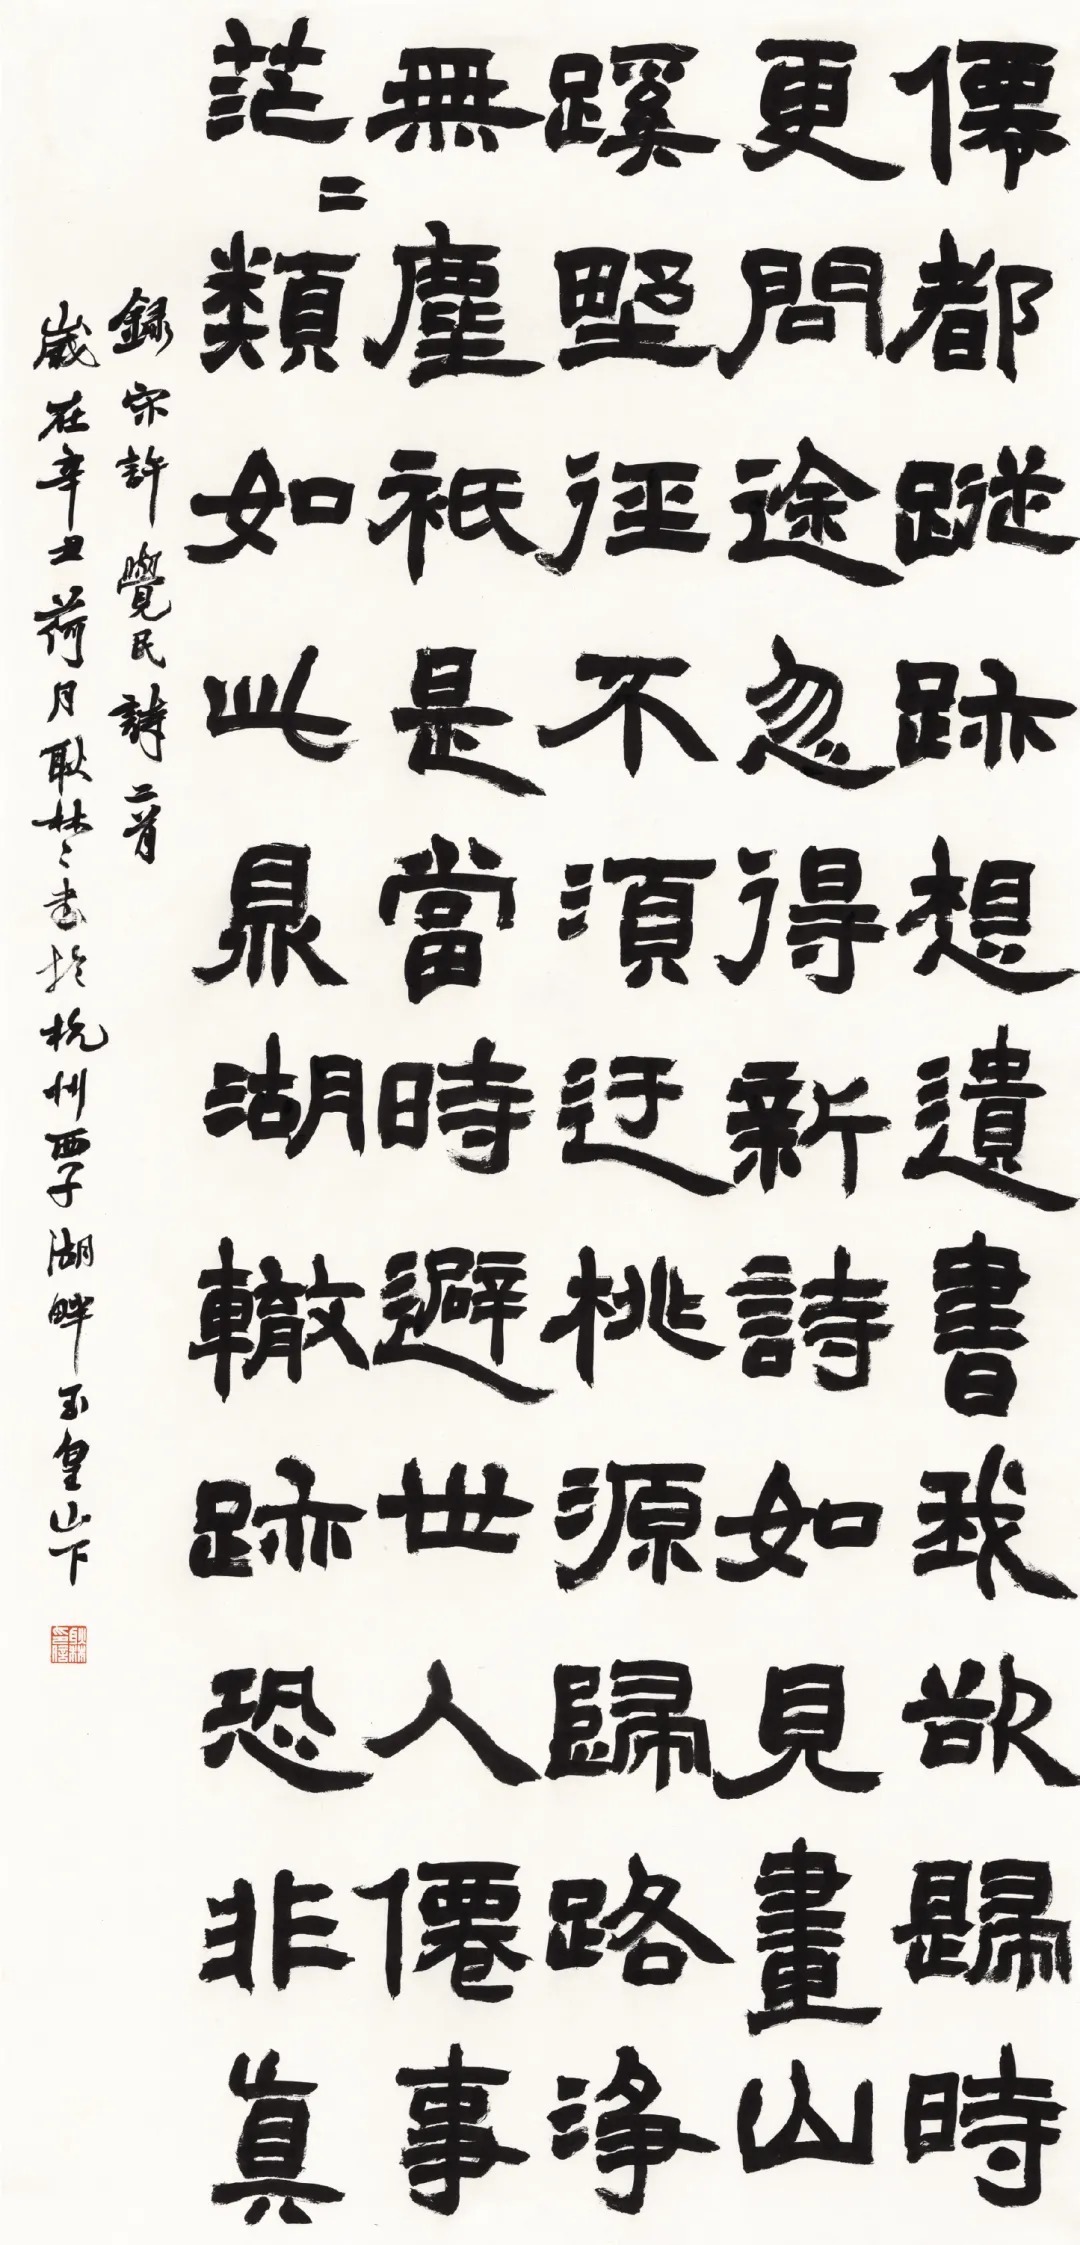 儒都蹤跡想遺書我欲歸時
更問途忽得新詩如見畫山
蹊野徑不須迂桃源歸路淨
無塵祇是當時避世人僊事
茫二類如此鼎湖轍跡恐非真
錄宋許覺民詩二首
歲在辛丑荷月耿林二書於杭州西子湖畔玉皇山下